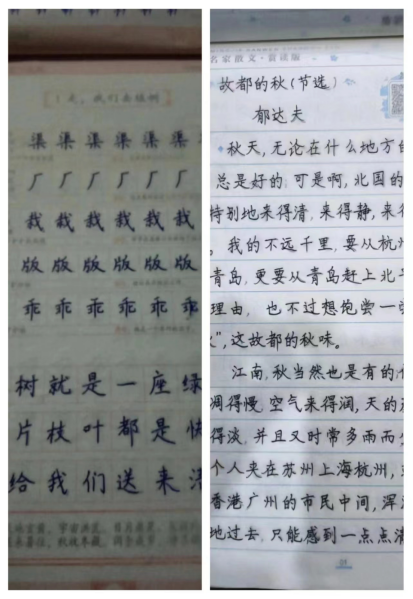 1 走，我们去植树
渠 渠 渠 渠 渠 渠 渠
厂 厂 厂 厂 厂 厂 厂
栽 栽 栽 栽 栽 栽
版 版 版 版 版 版
乖 乖 乖 乖 乖 乖
树就是一座绿
片枝叶都是快
给我们送来清
名家散文·赏读版
故都的秋(节选)
郁达夫
秋天,无论在什么地方的
总是好的,可是啊,北国的
特别地来得清,来得静,来得
。我的不远千里,要从杭州
青岛,更要从青岛赶上北平
理由,也不过想饱尝一尝
”,这故都的秋味。
江南,秋当然也是有的,但
凋得慢,空气来得润,天的
得淡,并且又时常多雨而少
个人夹在苏州上海杭州,或
香港广州的市民中间,浑
地过去,只能感到一点点清